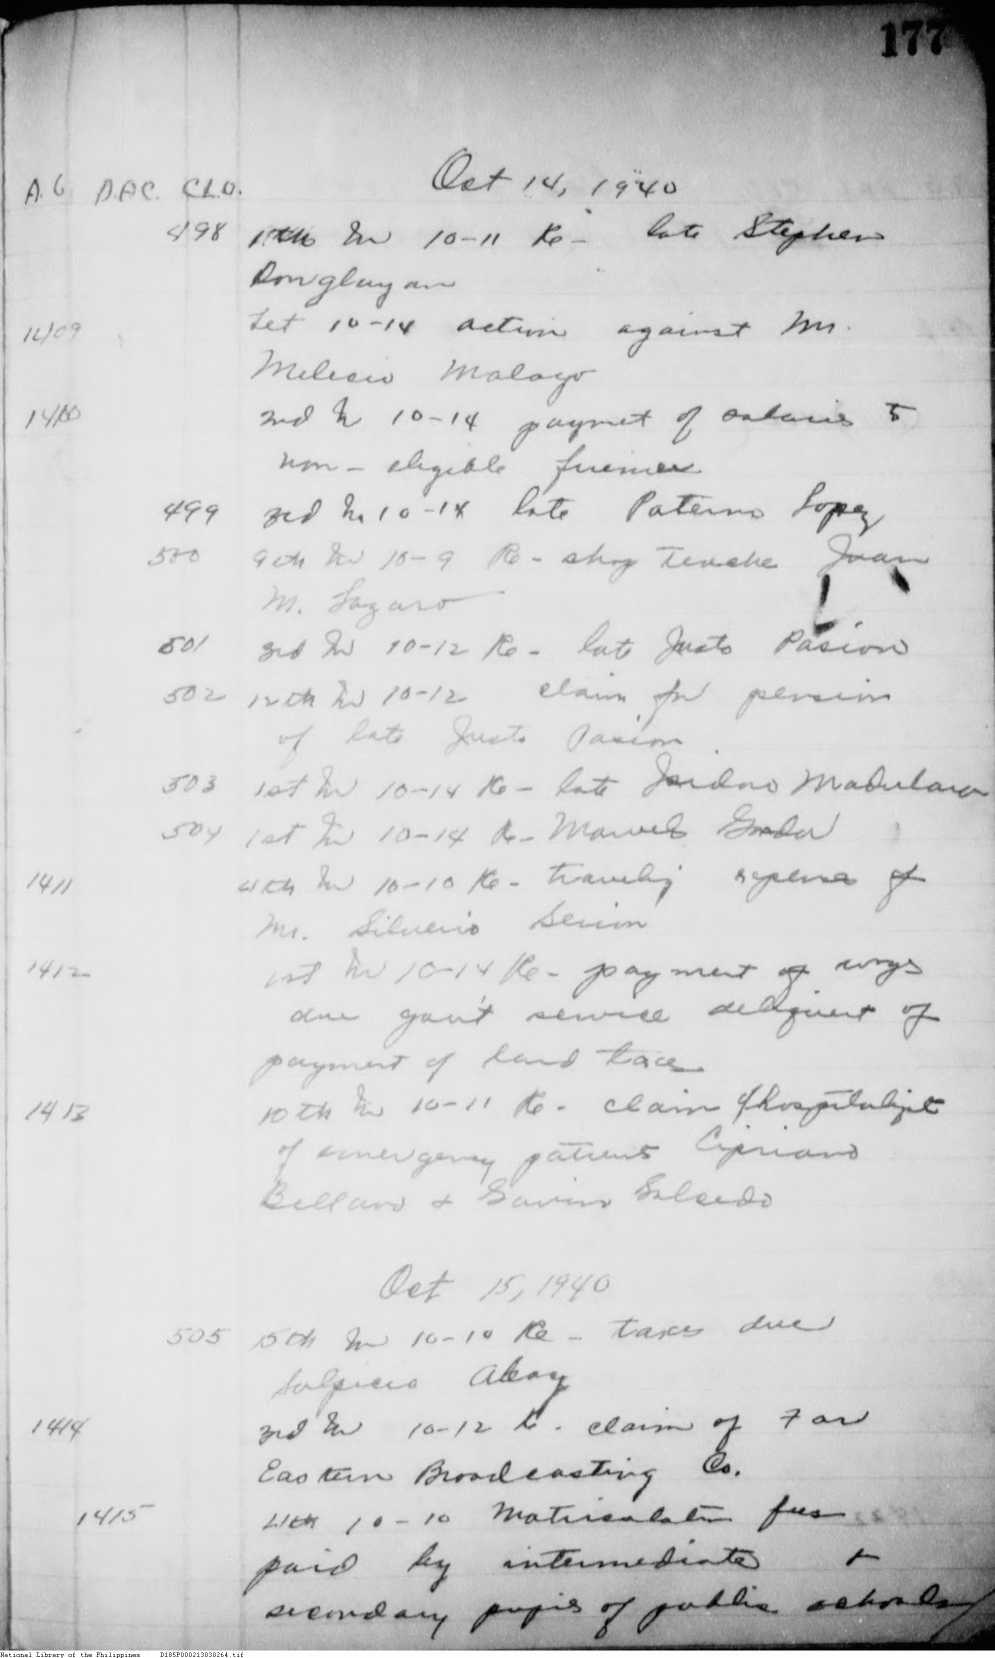 177
Oct 14, 1940
A.G. D.A.C. C.L.O.
498 In 10-11 Re- late Stephen
Donglayan
1409 Let 10-14 action against Mr.
Melecio Malago
1410 2nd In 10-14 paymet of salaries to
non-eligible firemen
499 3rd In 10-14 late Paterno Lopez
500 9th In 10-9 Re- shop teache Juan
M. Lazaro
501 3rd In 10-12 Re- late Justo Pasion
502 12th In 10-12 claim for pension
of late Justo Pasion.
503 1st In 10-14 Re- late Isidoro
504 1st In 10-14 Re-
1411 4th In 10-10 Re- traveling expense of
Mr. Silverio
1412 1st In 10-14 Re- payment of wags
due gov't service deliquent of
payment of land taxes
1413 10th In 10-11 Re- claim of
of emergency patients Cipriano
& Salsedo
Oct 15, 1940
505 15th In 10-10 Re- taxes due
Sulpicio
1414 3rd In 10-12 Re- claim of Far
Eastern Broadcasting Co.
1415 4th 10-10 Matriculation fees
paid by intermediate &
secondary pupils of public schools
National Library of the Philippines D185P000213030264.tif